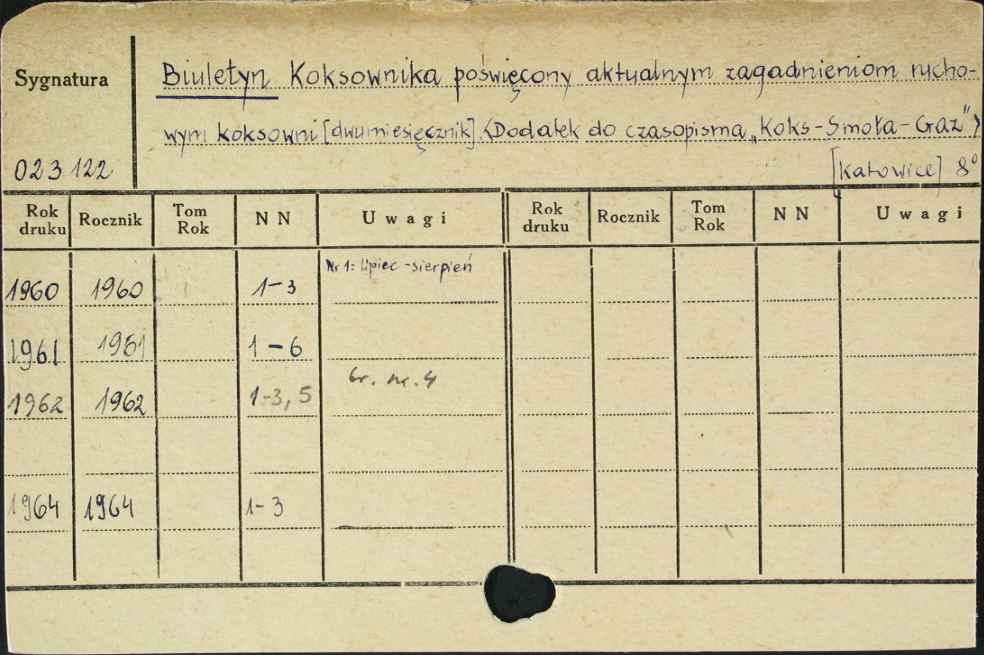 Sygnatura
Biuletyn Koksownika poświęcony aktualnym zagadnieniom rucho-
wym koksowni [dwumiesięcznik]. (Dodatek do czasopisma „Koks-Smoła-Gaz")
023122
[Katowice] 8°
Rok druku Rocznik Tom Rok NN Uwagi Rok druku Rocznik Tom Rok NN Uwagi
1960 1960 1-3 Nr 1: lipiec-sierpień
1961 1961 1-6
1962 1962 1-3, 5 br. nr. 4
1964 1964 1-3